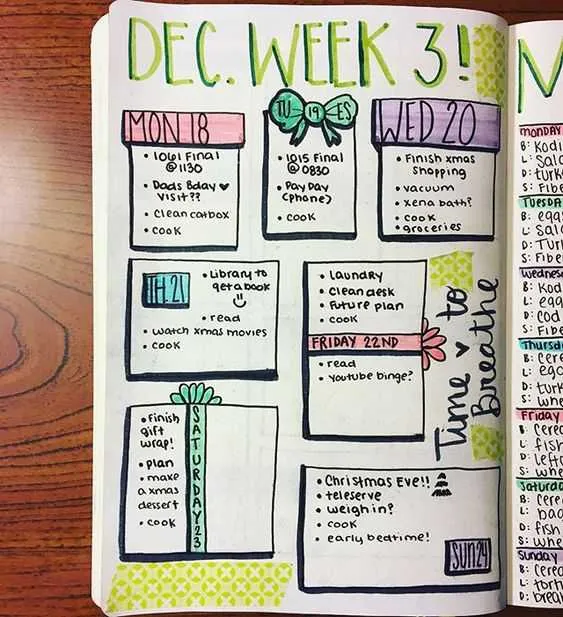 DEC. WEEK 3!
MON 18
• 1061 Final
@ 1130
• Dads Bday ♥
visit??
• clean catbox
• cook
TU 19 ES
• 1015 Final
@ 0830
• Pay Day
(phone)
• cook
WED 20
• Finish xmas
shopping
• vacuum
• xena bath?
• cook
• groceries
TH. 21
• Library to
get a book
• read
• watch xmas movies
• cook
• laundry
• clean desk
• future plan
• cook
FRIDAY 22ND
• read
• youtube binge?
Time ♥ to
Breathe
• finish
gift
wrap!
• plan
• make
a xmas
dessert
• cook
SATURDAY 23
• Christmas Eve!!
• teleserve
• weigh in?
• cook
• early bedtime!
SUN 24
MONDAY
B: Kodi
L: Sala
D: turk
S: Fibe
TUESDA
B: egg
L: Sal
D: Tur
S: Fibe
Wednes
B: Kod
L: egg
D: cod
S: Fibe
Thursd
B: Cer
L: egg
D: turk
S: whe
Friday
B: cerea
L: fish
D: lefto
S: whe
Saturda
B: cere
L:
D: fish
S: whe
Sunday
B: cerea
L: torti
D: break